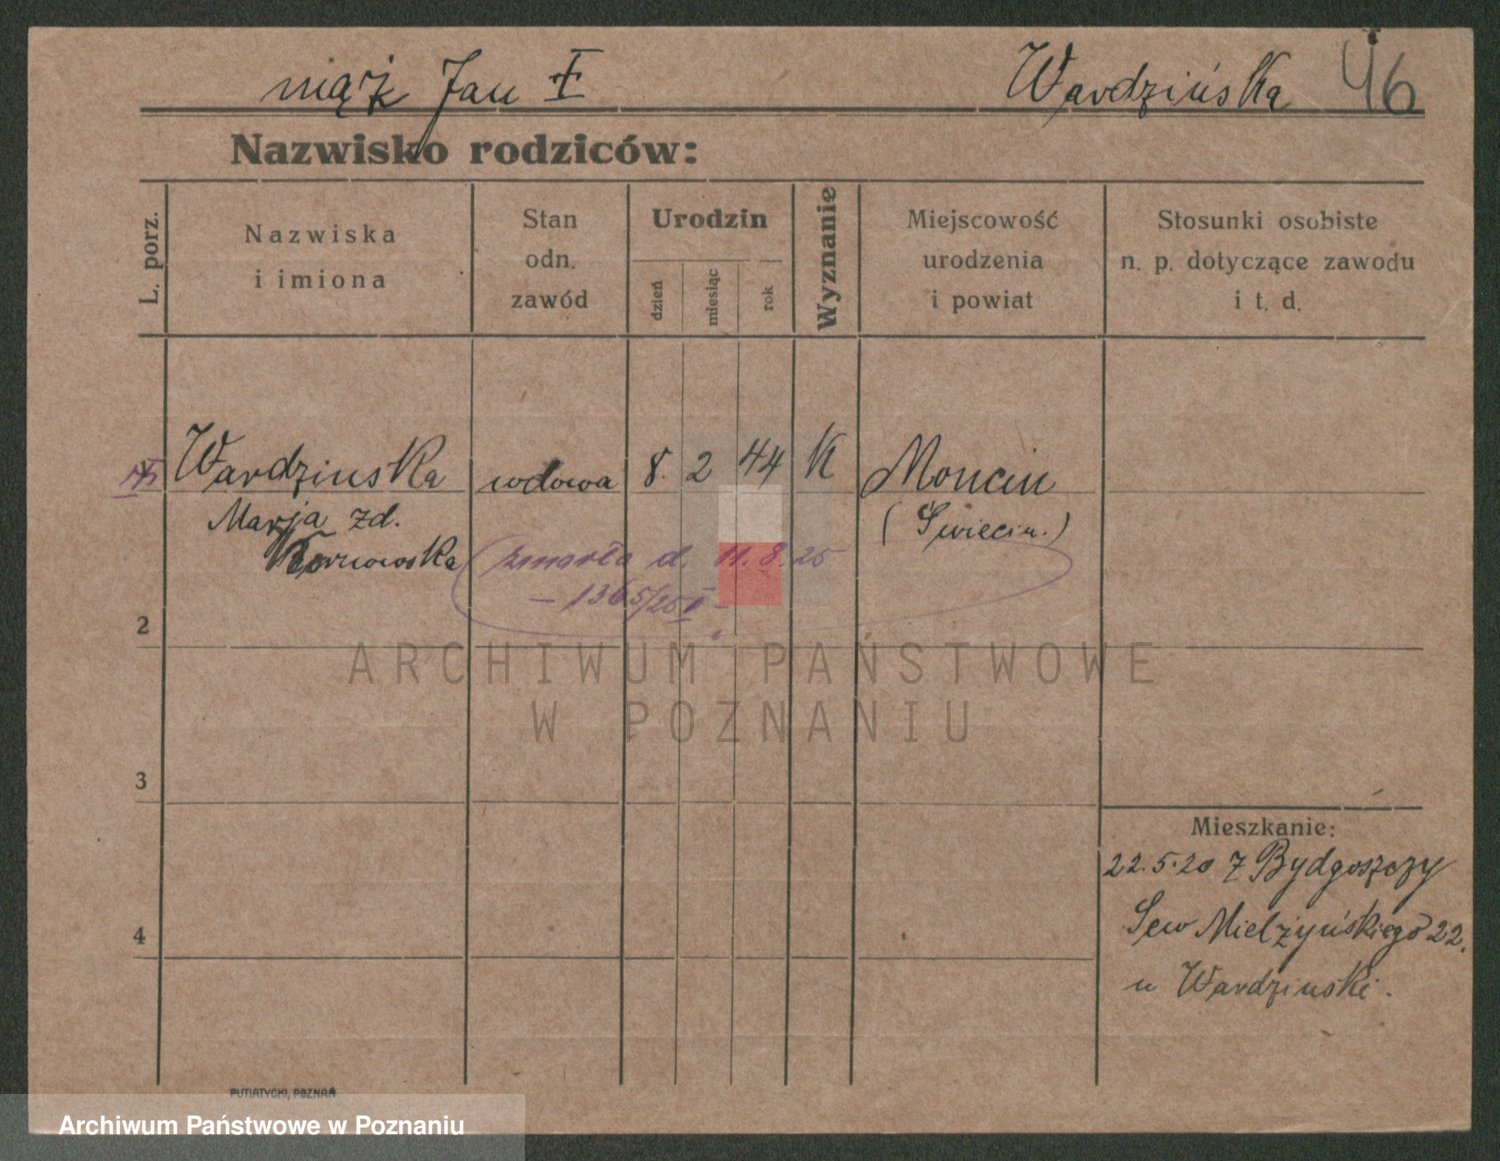 mąż Jan
Wardzińska 46
Nazwisko rodziców:
L. porz.
Nazwiska
i imiona
Stan
odn.
zawód
Urodzin
dzień
miesiąc
rok
Wyznanie
Miejscowość
urodzenia
i powiat
Stosunki osobiste
n. p. dotyczące zawodu
i t. d.
Wardzinska wdowa 8. 2 44 K
Marja zd. (Świecin.)
zmarła d. 11.8.25
– 1365/25 I –
2
ARCHIWUM PAŃSTWOWE
W POZNANIU
3
Mieszkanie:
22.5.20 z Bydgoszczy
Sew Mielżyńskiego 22.
4
u Wardzinski.
PUTIATYCKI, POZNAŃ
Archiwum Państwowe w Poznaniu